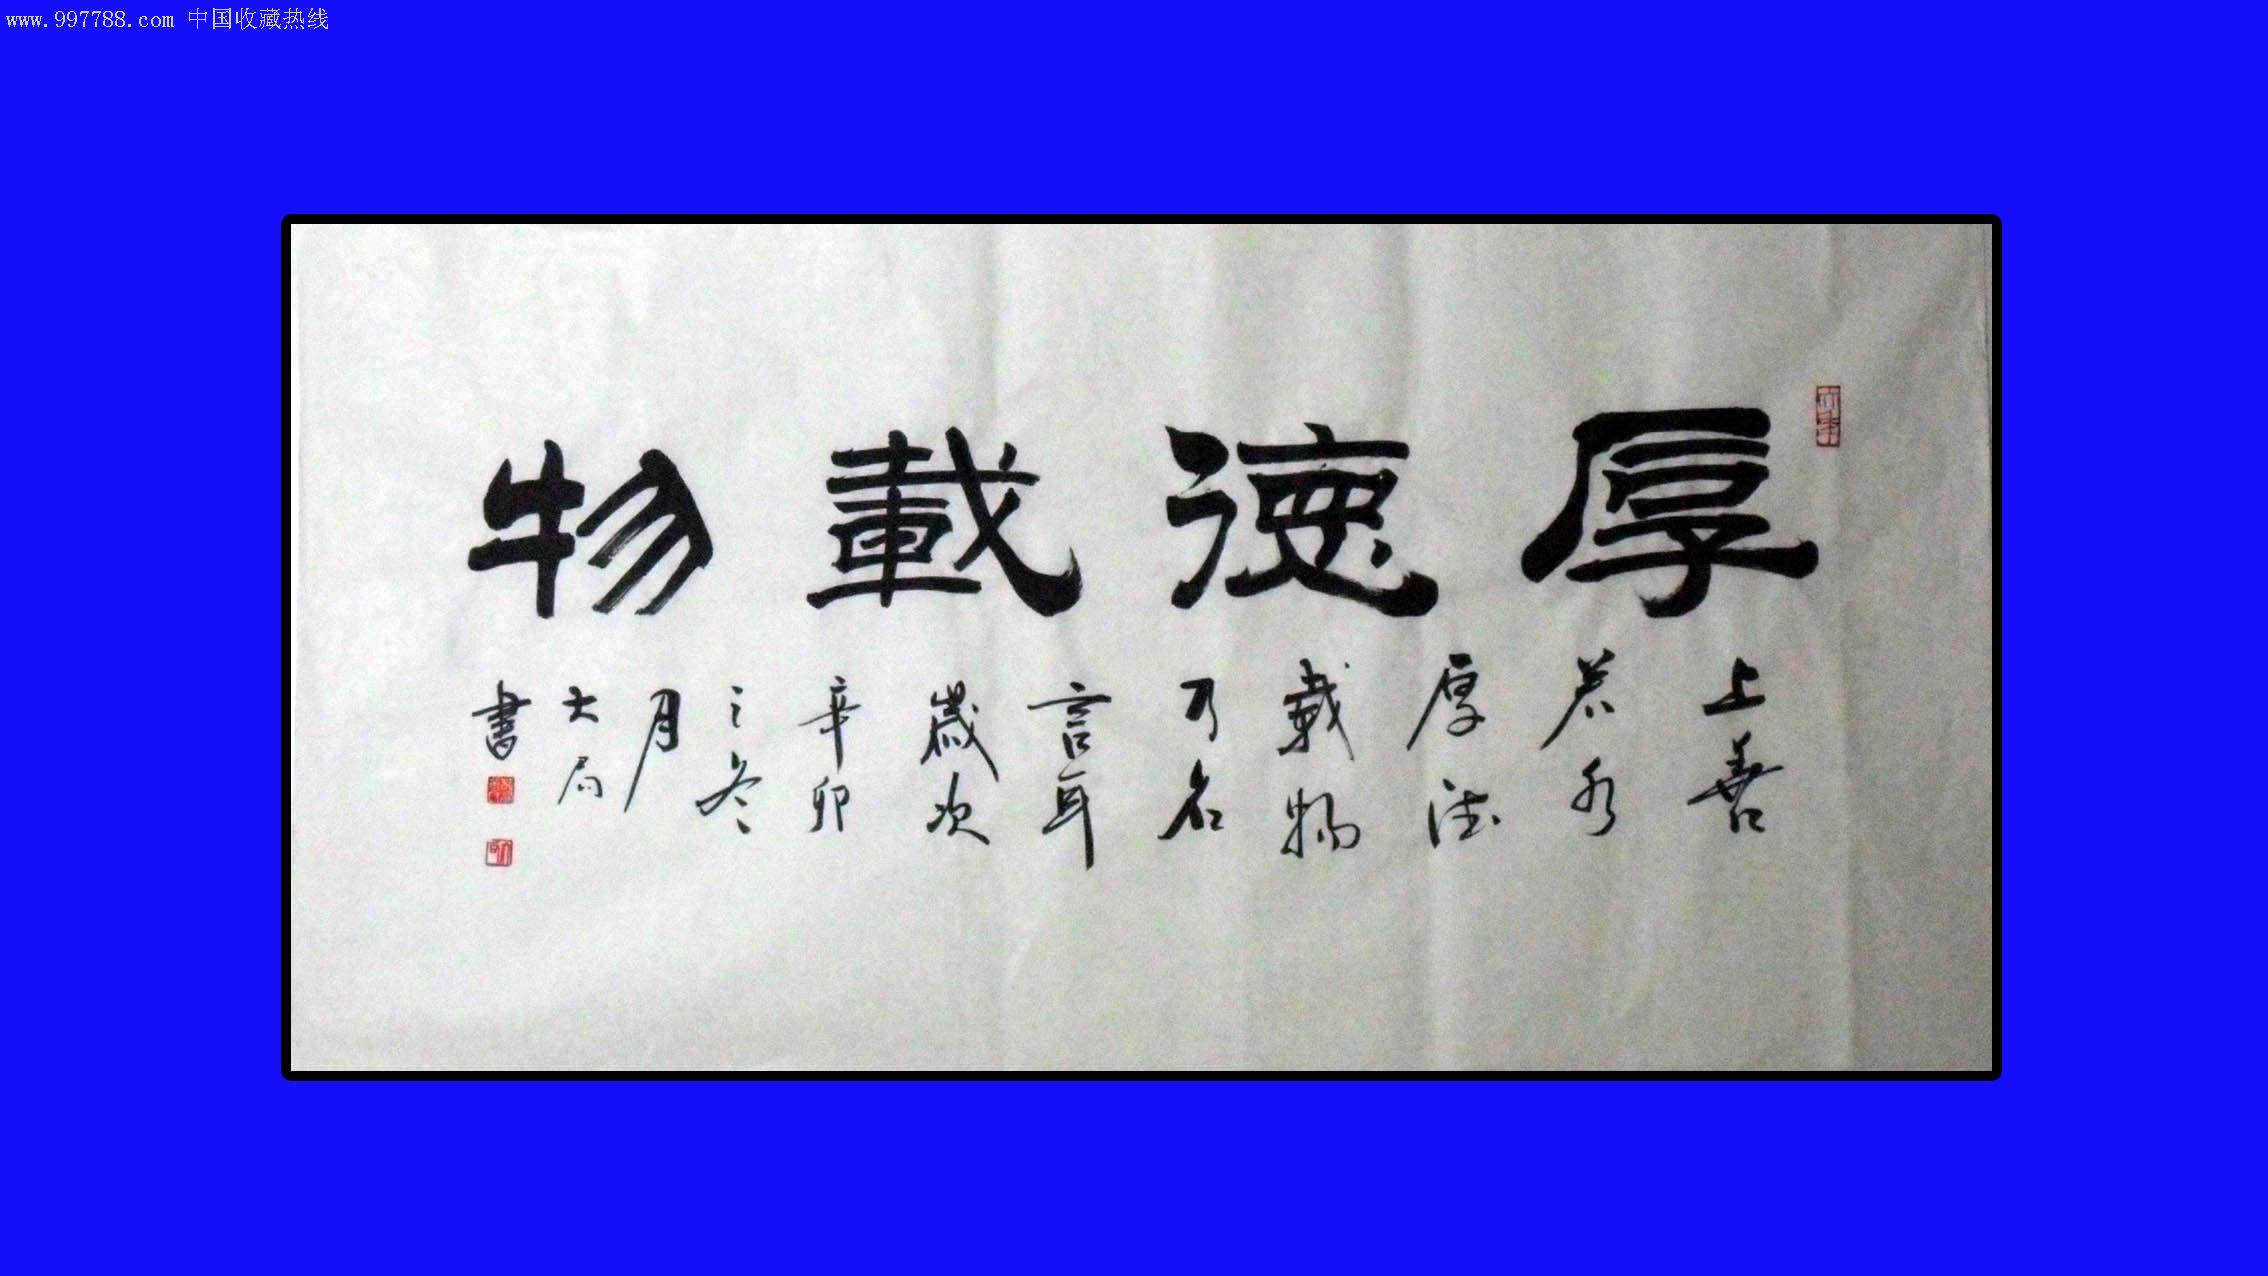 www.997788.com 中国收藏热线
厚德載物
上善
若水
厚德
載物
可名
言耳
歲次
辛卯
之冬
月
大
書